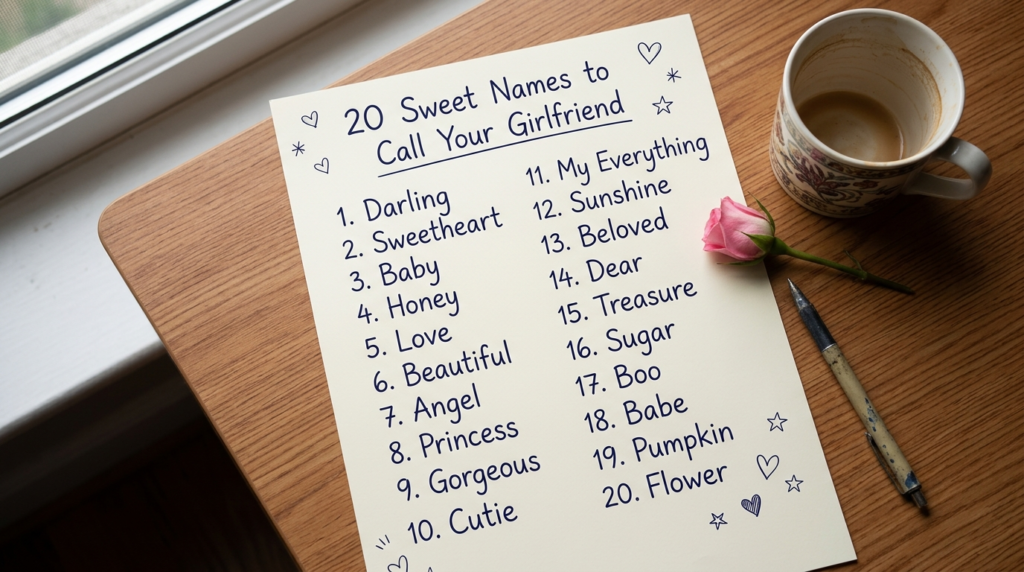 20 Sweet Names to
Call Your Girlfriend
1. Darling
2. Sweetheart
3. Baby
4. Honey
5. Love
6. Beautiful
7. Angel
8. Princess
9. Gorgeous
10. Cutie
11. My Everything
12. Sunshine
13. Beloved
14. Dear
15. Treasure
16. Sugar
17. Boo
18. Babe
19. Pumpkin
20. Flower